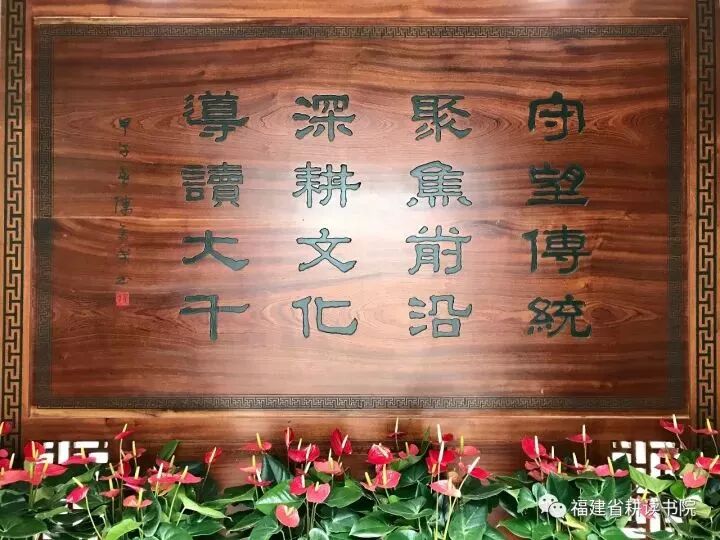 守望傳統
聚焦前沿
深耕文化
導讀大千
福建省耕读书院